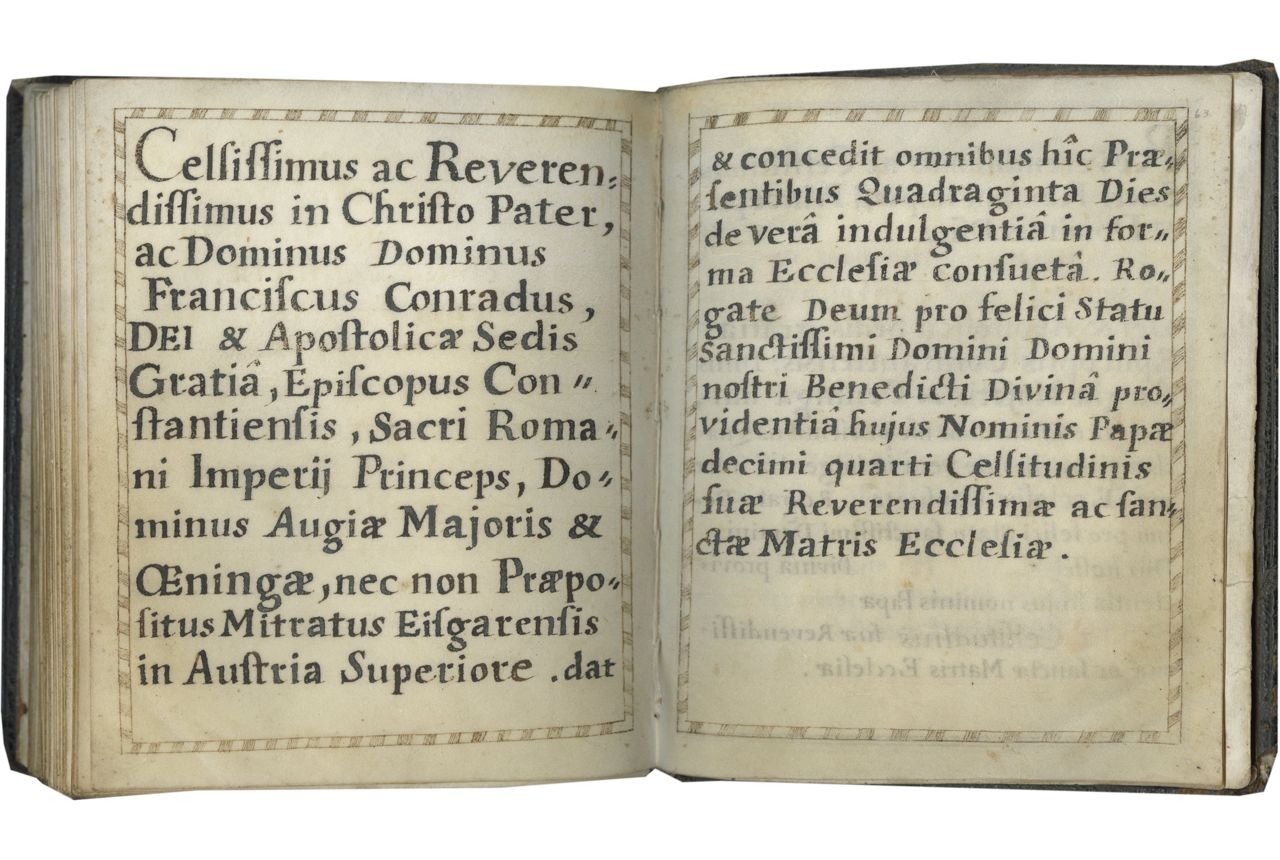 Celſiſſimus ac Reveren⸗
diſſimus in Chriſto Pater,
ac Dominus Dominus
Franciſcus Conradus,
DEI & Apoſtolicæ Sedis
Gratiâ, Epiſcopus Con⸗
ſtantienſis, Sacri Roma⸗
ni Imperij Princeps, Do⸗
minus Augiæ Majoris &
Œningæ, nec non Præpo⸗
ſitus Mitratus Eiſgarenſis
in Auſtria Superiore .dat
63
& concedit omnibus hîc Præ⸗
ſentibus Quadraginta Dies
de verâ indulgentiâ in for⸗
ma Eccleſiæ conſuetâ. Ro⸗
gate Deum pro felici Statu
sanctiſſimi Domini Domini
noſtri Benedicti Divinâ pro⸗
videntiâ hujus Nominis Papæ
decimi quarti Celſitudinis
ſuæ Reverendiſſimæ ac ſan⸗
ctæ Matris Eccleſiæ.